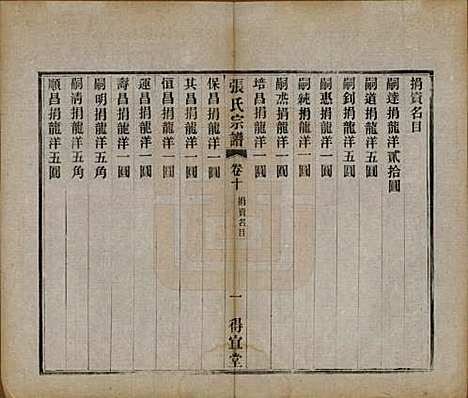 捐資名目
嗣達捐龍洋貳拾圓
嗣道捐龍洋五圓
嗣釗捐龍洋五圓
嗣惠捐龍洋一圓
嗣純捐龍洋一圓
嗣烝捐龍洋一圓
培昌捐龍洋一圓
張氏宗譜
卷十
捐資名目
一
得宜堂
保昌捐龍洋一圓
其昌捐龍洋一圓
恒昌捐龍洋一圓
運昌捐龍洋一圓
壽昌捐龍洋一圓
嗣明捐龍洋五角
嗣清捐龍洋五角
順昌捐龍洋五圓